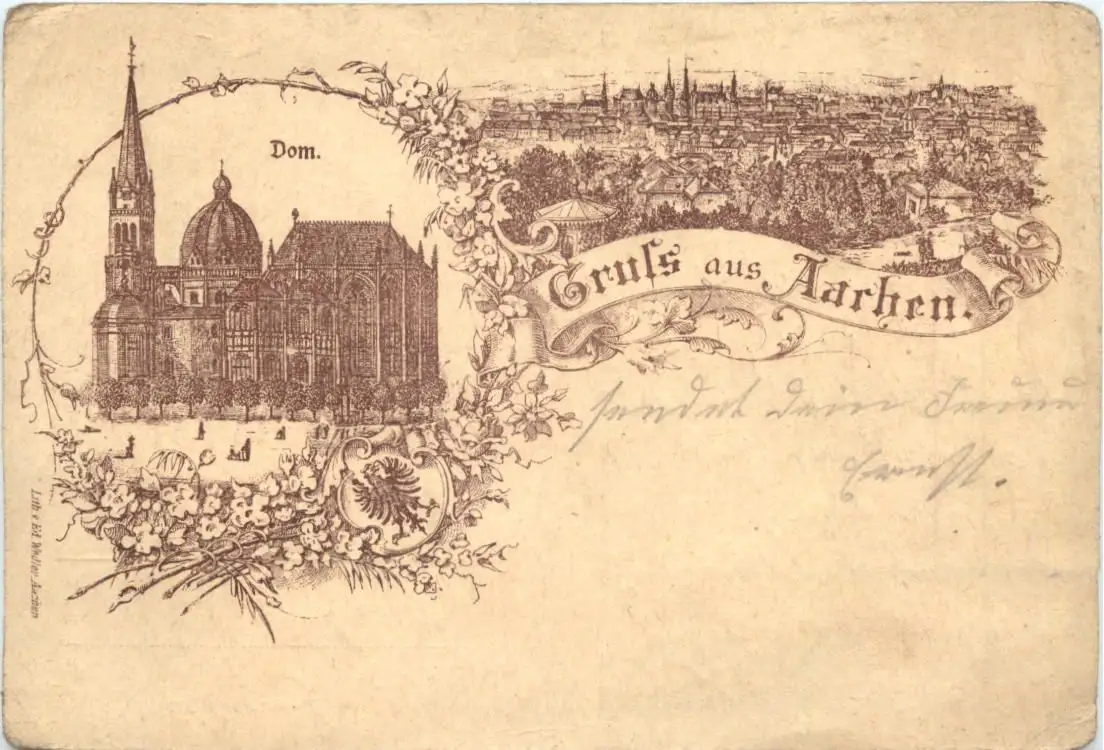 Dom.
Gruss aus Aachen.
sendet Dein Freund
Ernst.
Lith. v. Ed. Aachen